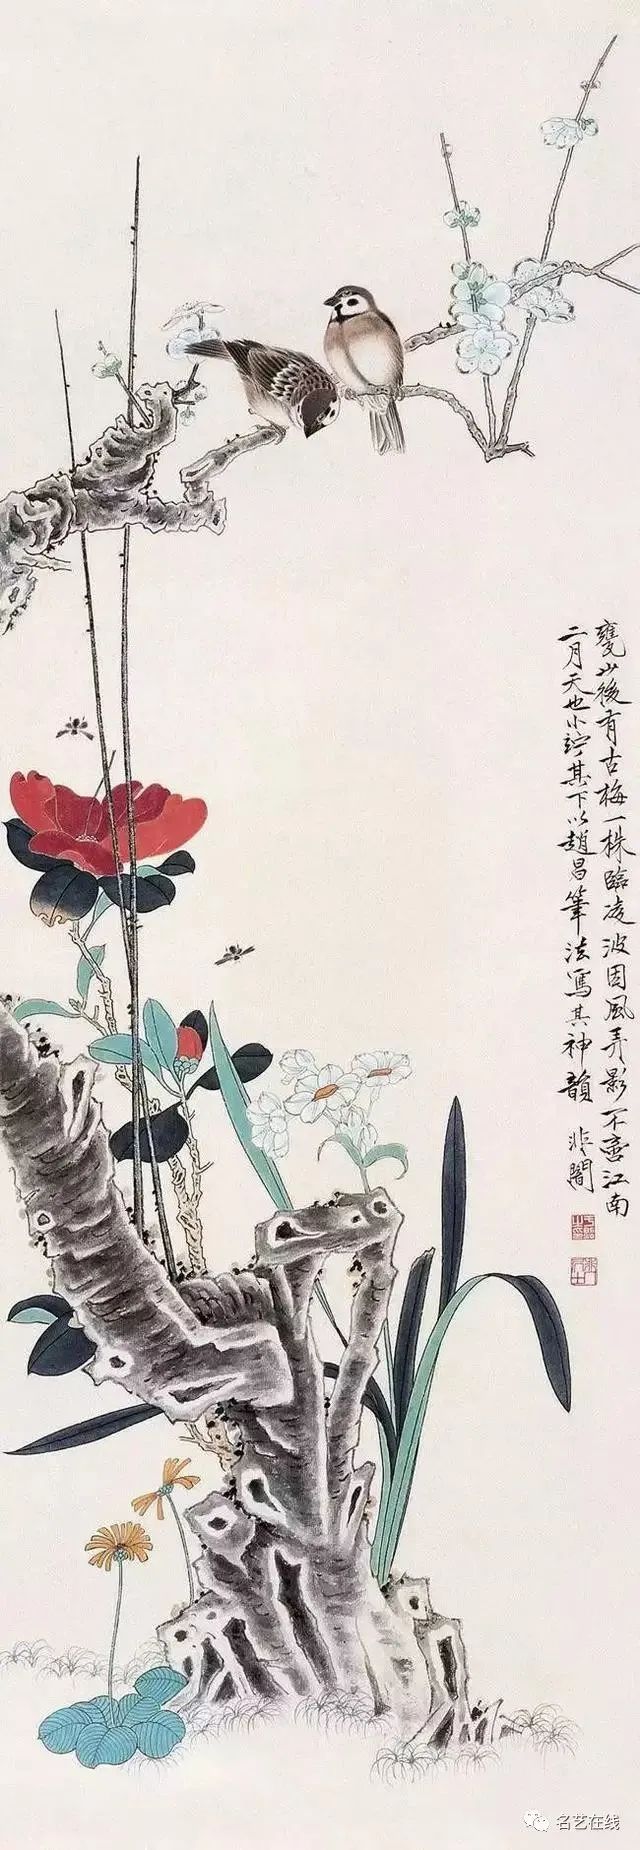 甕山後有古梅一株臨凌波因風弄影不啻江南
二月天也小竚其下以趙昌筆法寫其神韻 非闇
名艺在线